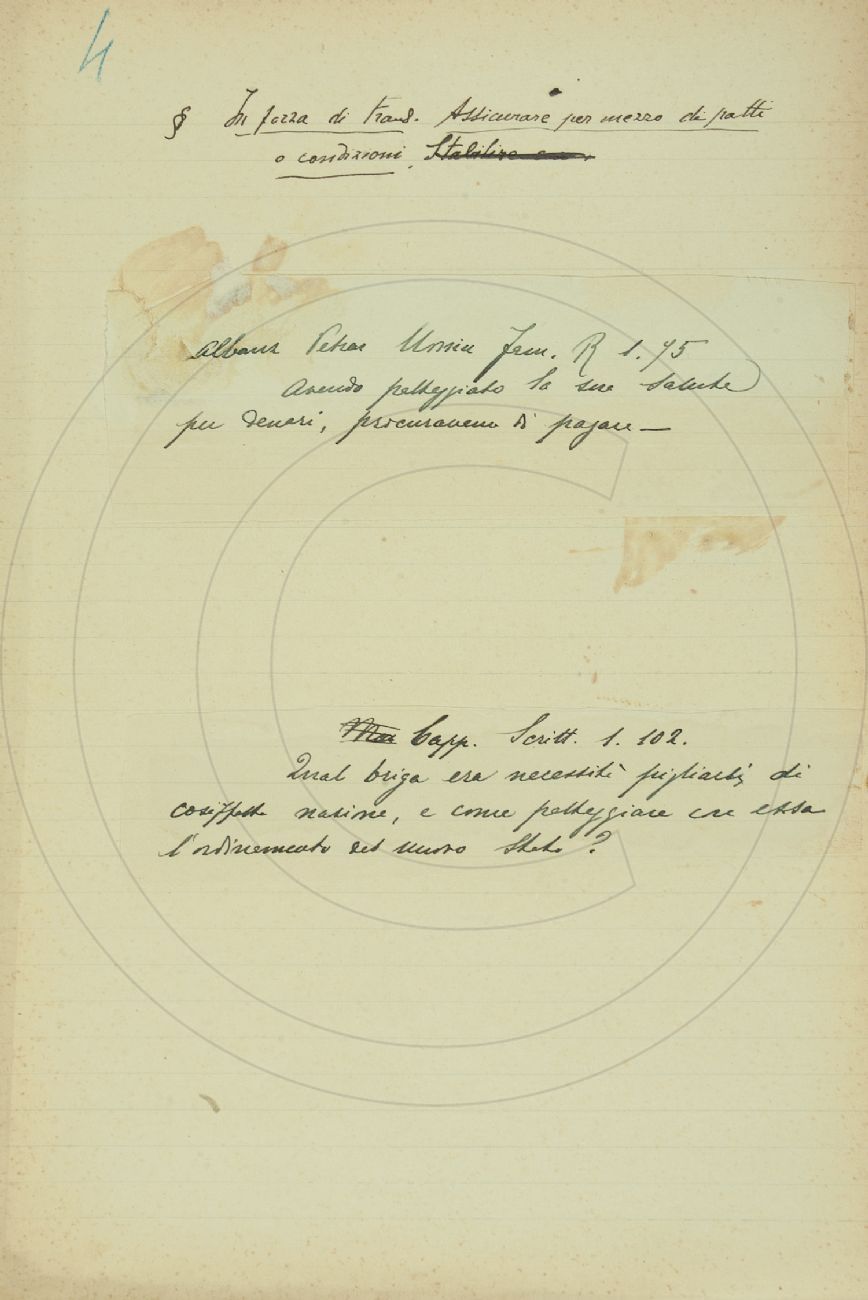 4
§ In forza di trans. Assicurare per mezzo di patti
o condizioni. Stabilire
Petrar. Fam. R 1. 75
Avendo patteggiato la sua salute
per denari, procuravano di pagare —
Capp. Scritt. 1. 102.
Qual briga era necessità pigliarsi di
cosiffatta nazione, e come patteggiare con essa
l'ordinamento del nuovo Stato?